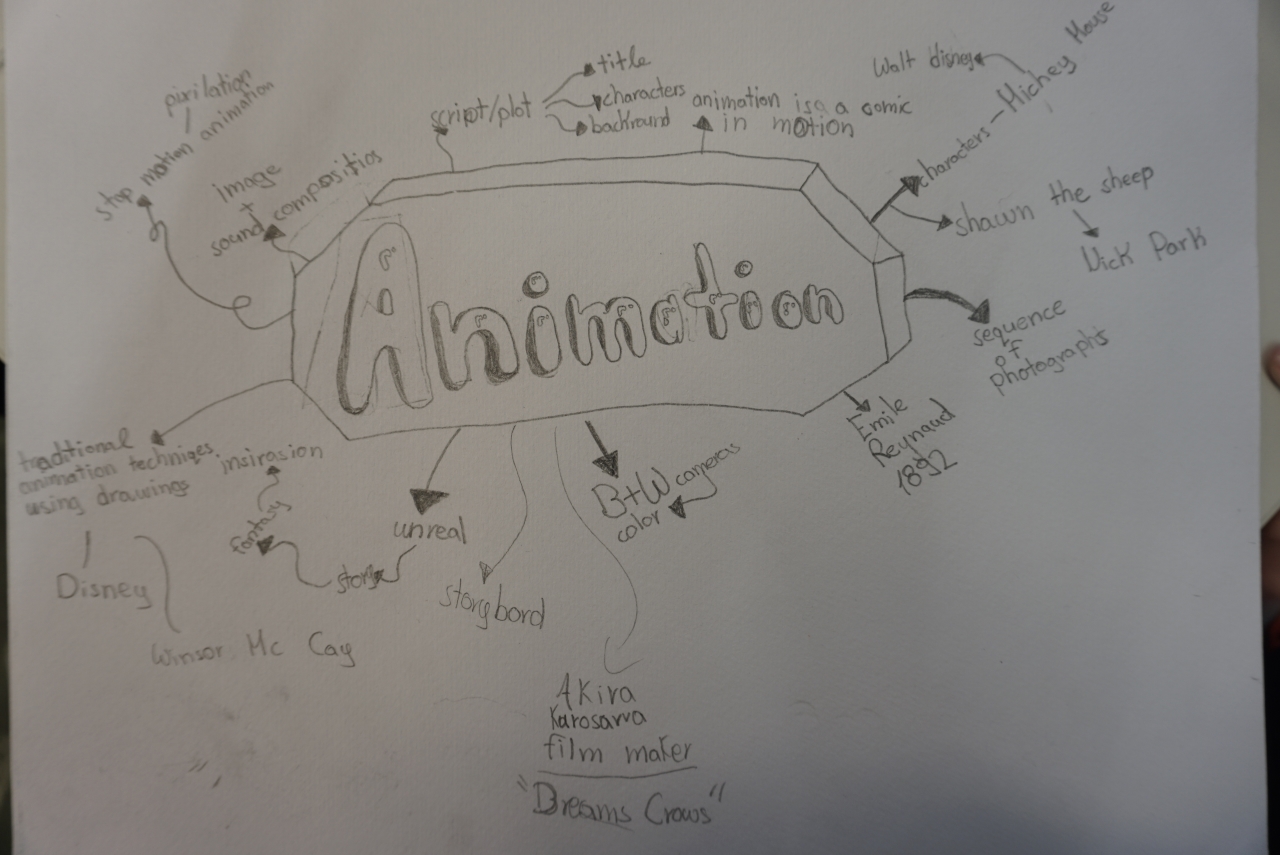 pixilation
stop motion animation
image
+
sound compositios
script/plot
title
characters
backround
animation is a a comic
in motion
characters - Mickey Mouse
Walt disney
shawn the sheep
Nick Park
sequence
of
photographs
Emile
Reynaud
1892
Animation
B+W cameras
color
Akira
Karosawa
film maker
"Dreams Crows"
storybord
unreal
story
fantasy
insirasion
traditional
animation techniqes
using drawings
Disney
Winsor Mc Cay